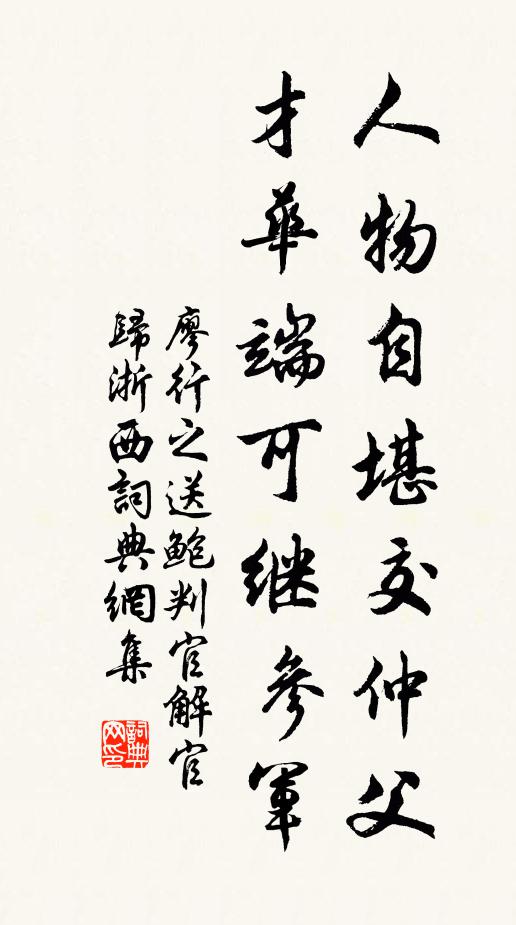 人物自堪交仲父
才華端可继參軍
廖行之送鲍判官解官
歸浙西詞典網集
詞典网印